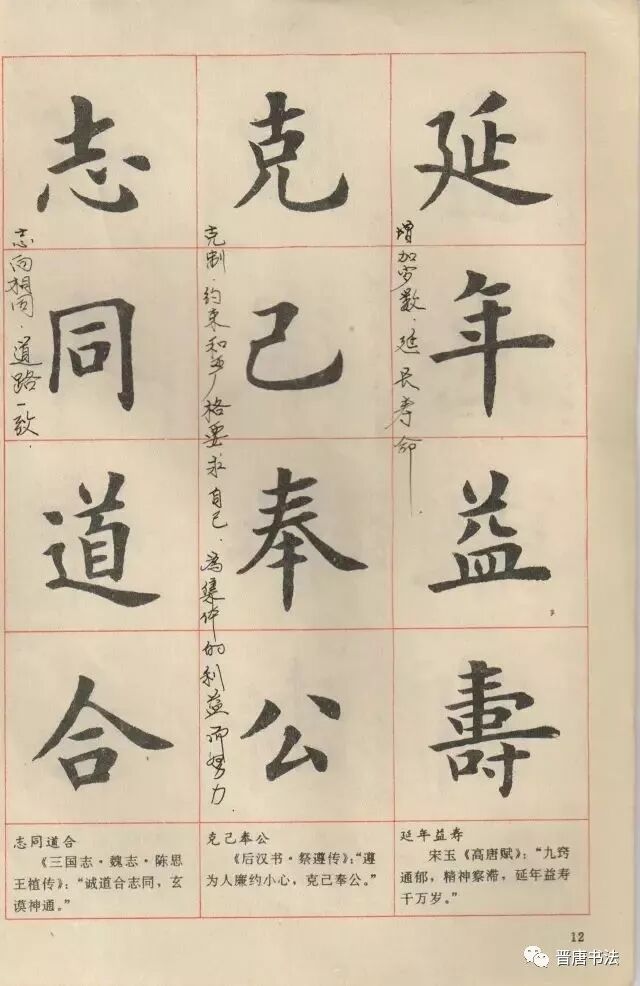 延年益壽
增加岁数.延长寿命
克己奉公
克制.约束和严格要求自己.为集体的利益而努力
志同道合
志向相同.道路一致.
延年益寿
宋玉《高唐赋》：“九窍
通郁，精神察滞，延年益寿
千万岁。”
克己奉公
《后汉书·祭遵传》：“遵
为人廉约小心，克己奉公。”
志同道合
《三国志·魏志·陈思
王植传》：“诚道合志同，玄
谟神通。”
12
晋唐书法